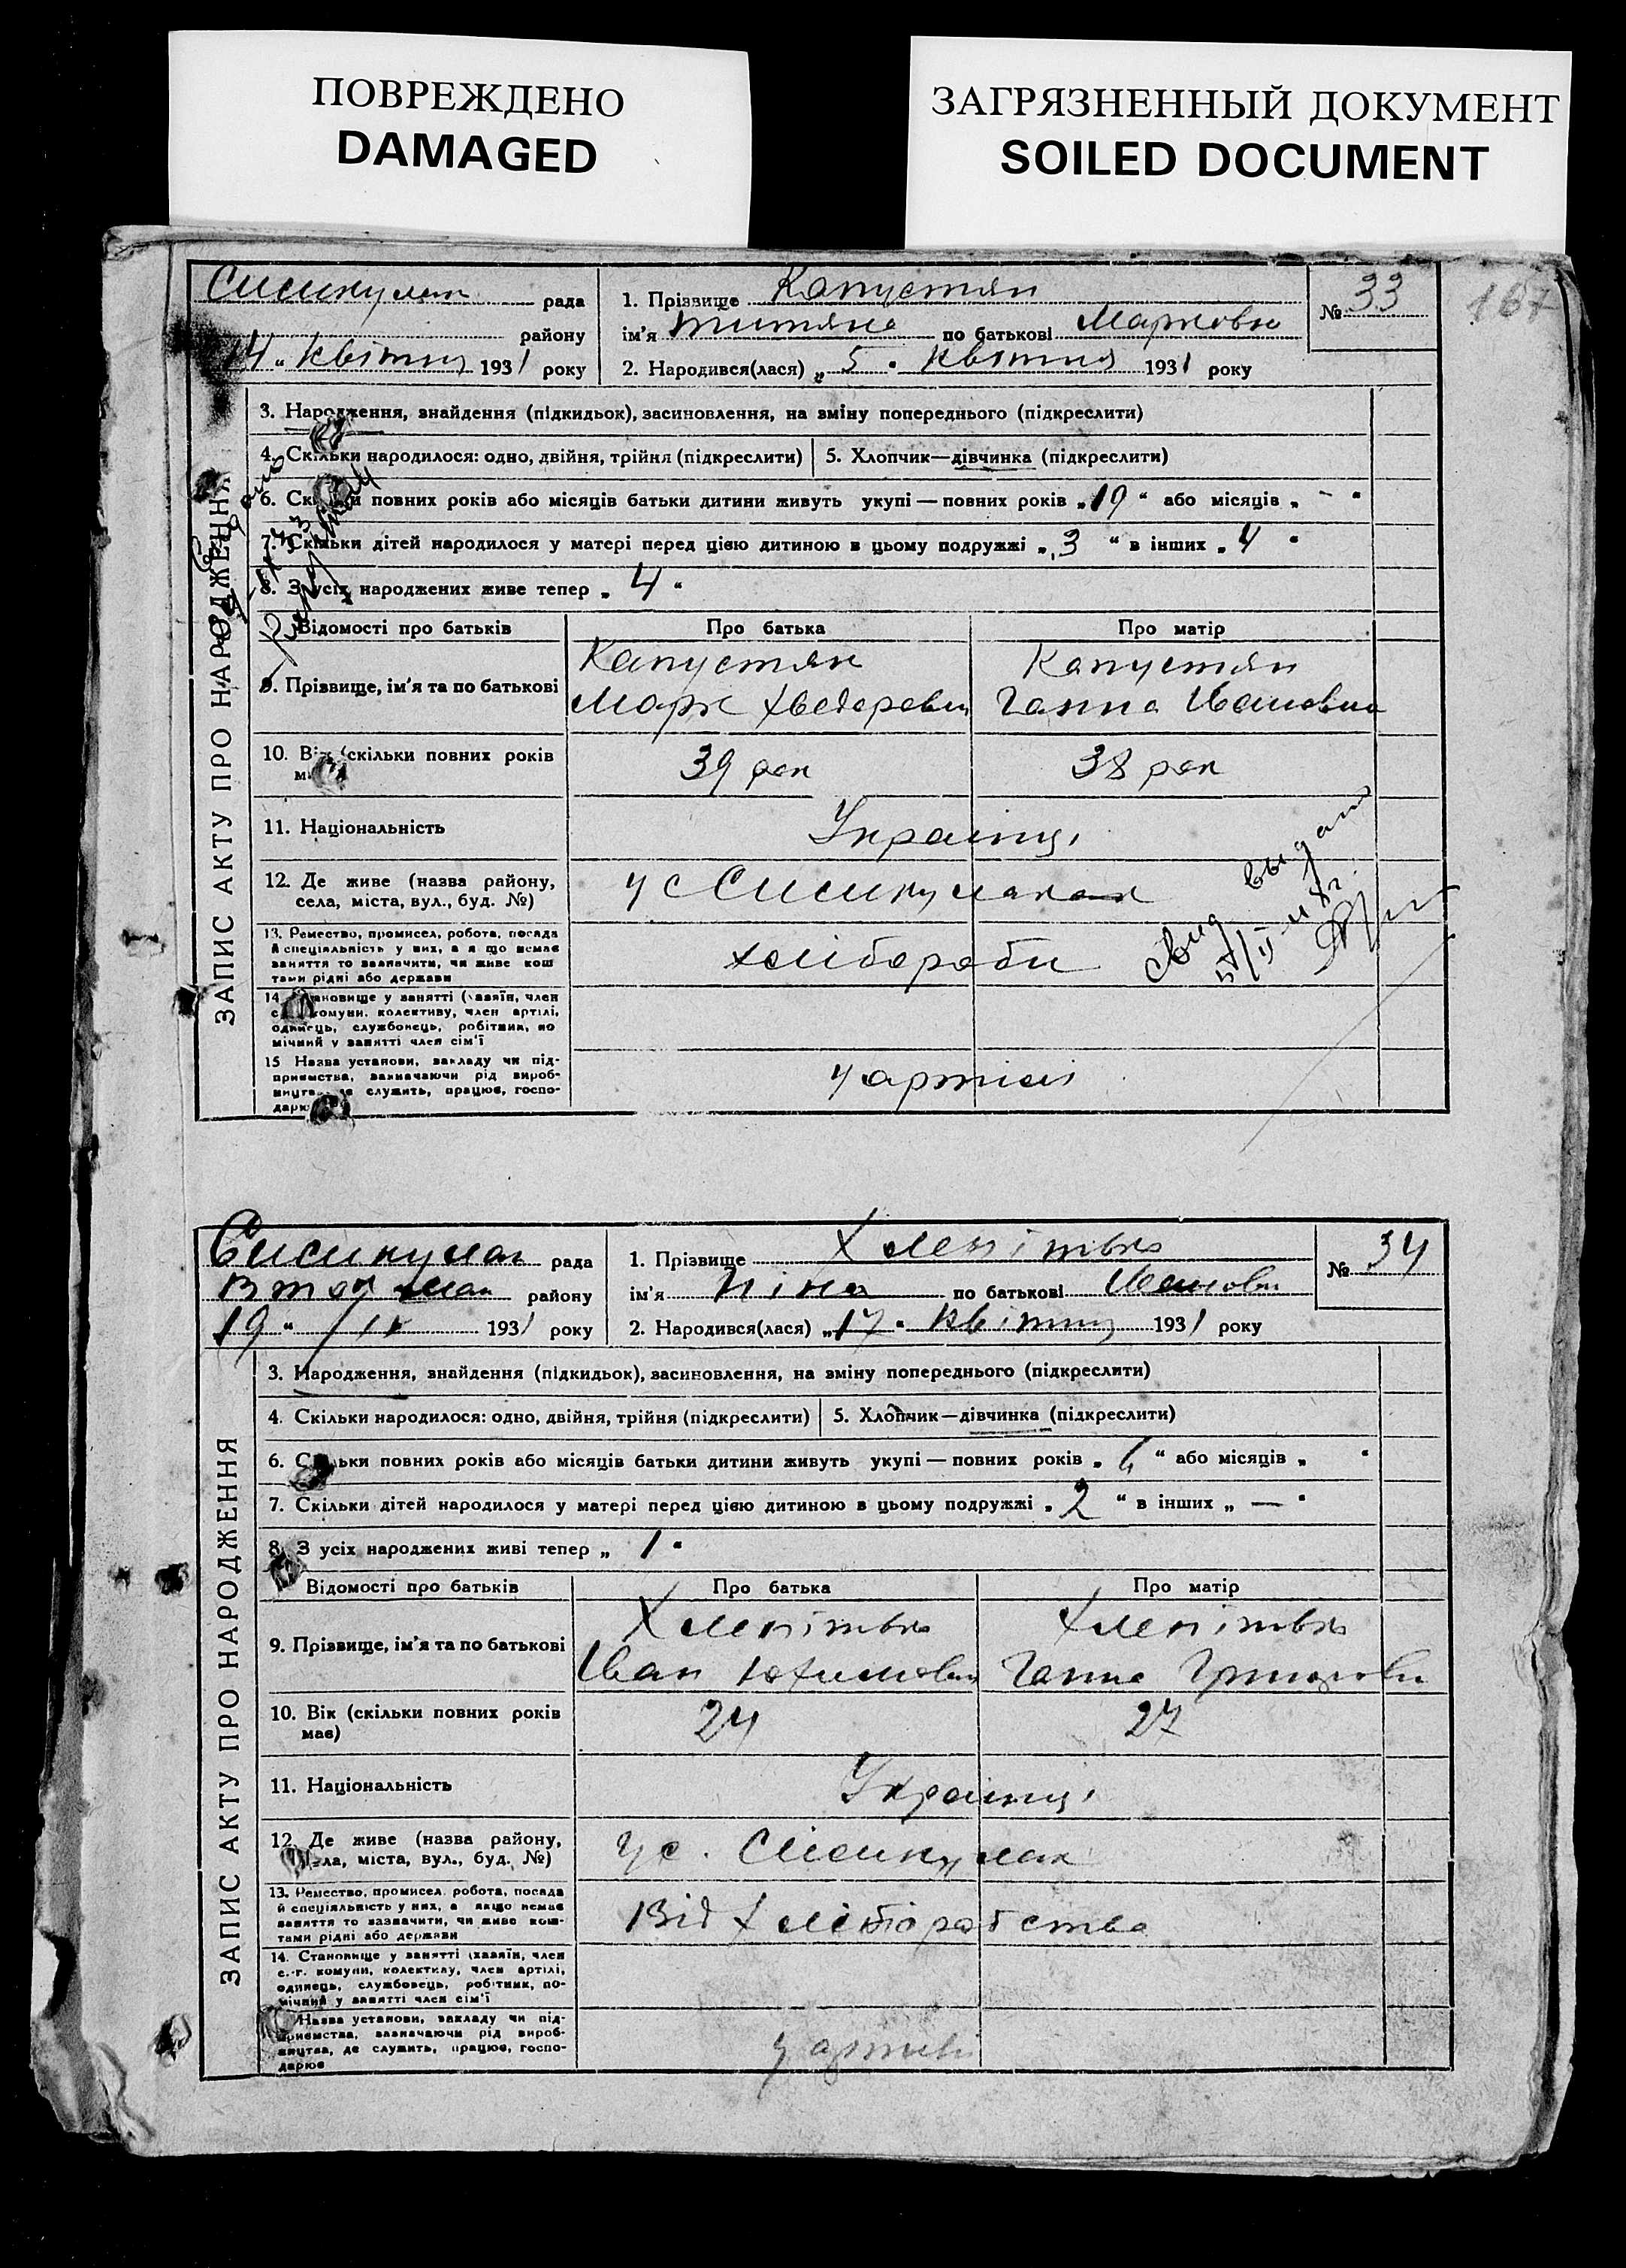 ПОВРЕЖДЕНО
DAMAGED
ЗАГРЯЗНЕННЫЙ ДОКУМЕНТ
SOILED DOCUMENT
167
рада
району
14 " квітня 1931 року
1. Прізвище Капустян
ім'я по батькові Марковна
2. Народився(лася) „ 5 " квітня 1931 року
№ 33
ЗАПИС АКТУ ПРО НАРОДЖЕННЯ
3. Народження, знайдення (підкидьок), засиновлення, на зміну попереднього (підкреслити)
4. Скільки народилося: одно, двійня, трійня (підкреслити)
5. Хлопчик—дівчинка (підкреслити)
6. Скільки повних років або місяців батьки дитини живуть укупі — повних років „ 19 " або місяців „ - "
7. Скільки дітей народилося у матері перед цією дитиною в цьому подружжі „ 3 " в інших „ 4 "
8. З усіх народжених живе тепер „ 4 "
Відомості про батьків
Про батька
Про матір
9. Прізвище, ім'я та по батькові
Капустян
Марк Хведорович
Капустян
Ганна Ивановна
10. Вік (скільки повних років
39 рок
38 рок
11. Національність
Українці
12. Де живе (назва району,
села, міста, вул., буд. №)
у с
13. Ремество, промисел, робота, посада
й спеціяльність у них, а якщо немає
заняття то зазначити, чи живе кош
тами рідні або держави
хлібороби
14. Становище у занятті (хазяїн, член
с.-г. комуни, колективу, член артілі,
одинець, службовець, робітник, по
мічний у занятті член сім'ї
15 Назва установи, закладу чи під-
приємства, зазначаючи рід вироб-
ництва, де служить, працює, госпо-
дарює
у артілі
Свид выдано
рада
району
19 " IV 1931 року
1. Прізвище Хлепітько
ім'я Ніна по батькові Ивановн
2. Народився(лася) „ 17 " квітня 1931 року
№ 34
ЗАПИС АКТУ ПРО НАРОДЖЕННЯ
3. Народження, знайдення (підкидьок), засиновлення, на зміну попереднього (підкреслити)
4. Скільки народилося: одно, двійня, трійня (підкреслити)
5. Хлопчик—дівчинка (підкреслити)
6. Скільки повних років або місяців батьки дитини живуть укупі — повних років „ 6 " або місяців „ "
7. Скільки дітей народилося у матері перед цією дитиною в цьому подружжі „ 2 " в інших „ — "
8. З усіх народжених живі тепер „ 1 "
Відомості про батьків
Про батька
Про матір
9. Прізвище, ім'я та по батькові
Хлепітько
Иван Юхимович
Хлепітько
Ганна Григоровн
10. Вік (скільки повних років
має)
24
27
11. Національність
Українці
12. Де живе (назва району,
села, міста, вул., буд. №)
у с.
13. Ремество, промисел, робота, посада
й спеціяльність у них, а якщо немає
заняття то зазначити, чи живе кош-
тами рідні або держави
Від хліборобства
14. Становище у занятті (хазяїн, член
с.-г. комуни, колективу, член артілі,
одинець, службовець, робітник, по-
мічний у занятті член сім'ї
Назва установи, закладу чи під-
приємства, зазначаючи рід вироб-
ництва, де служить, працює, госпо-
дарює
у артілі